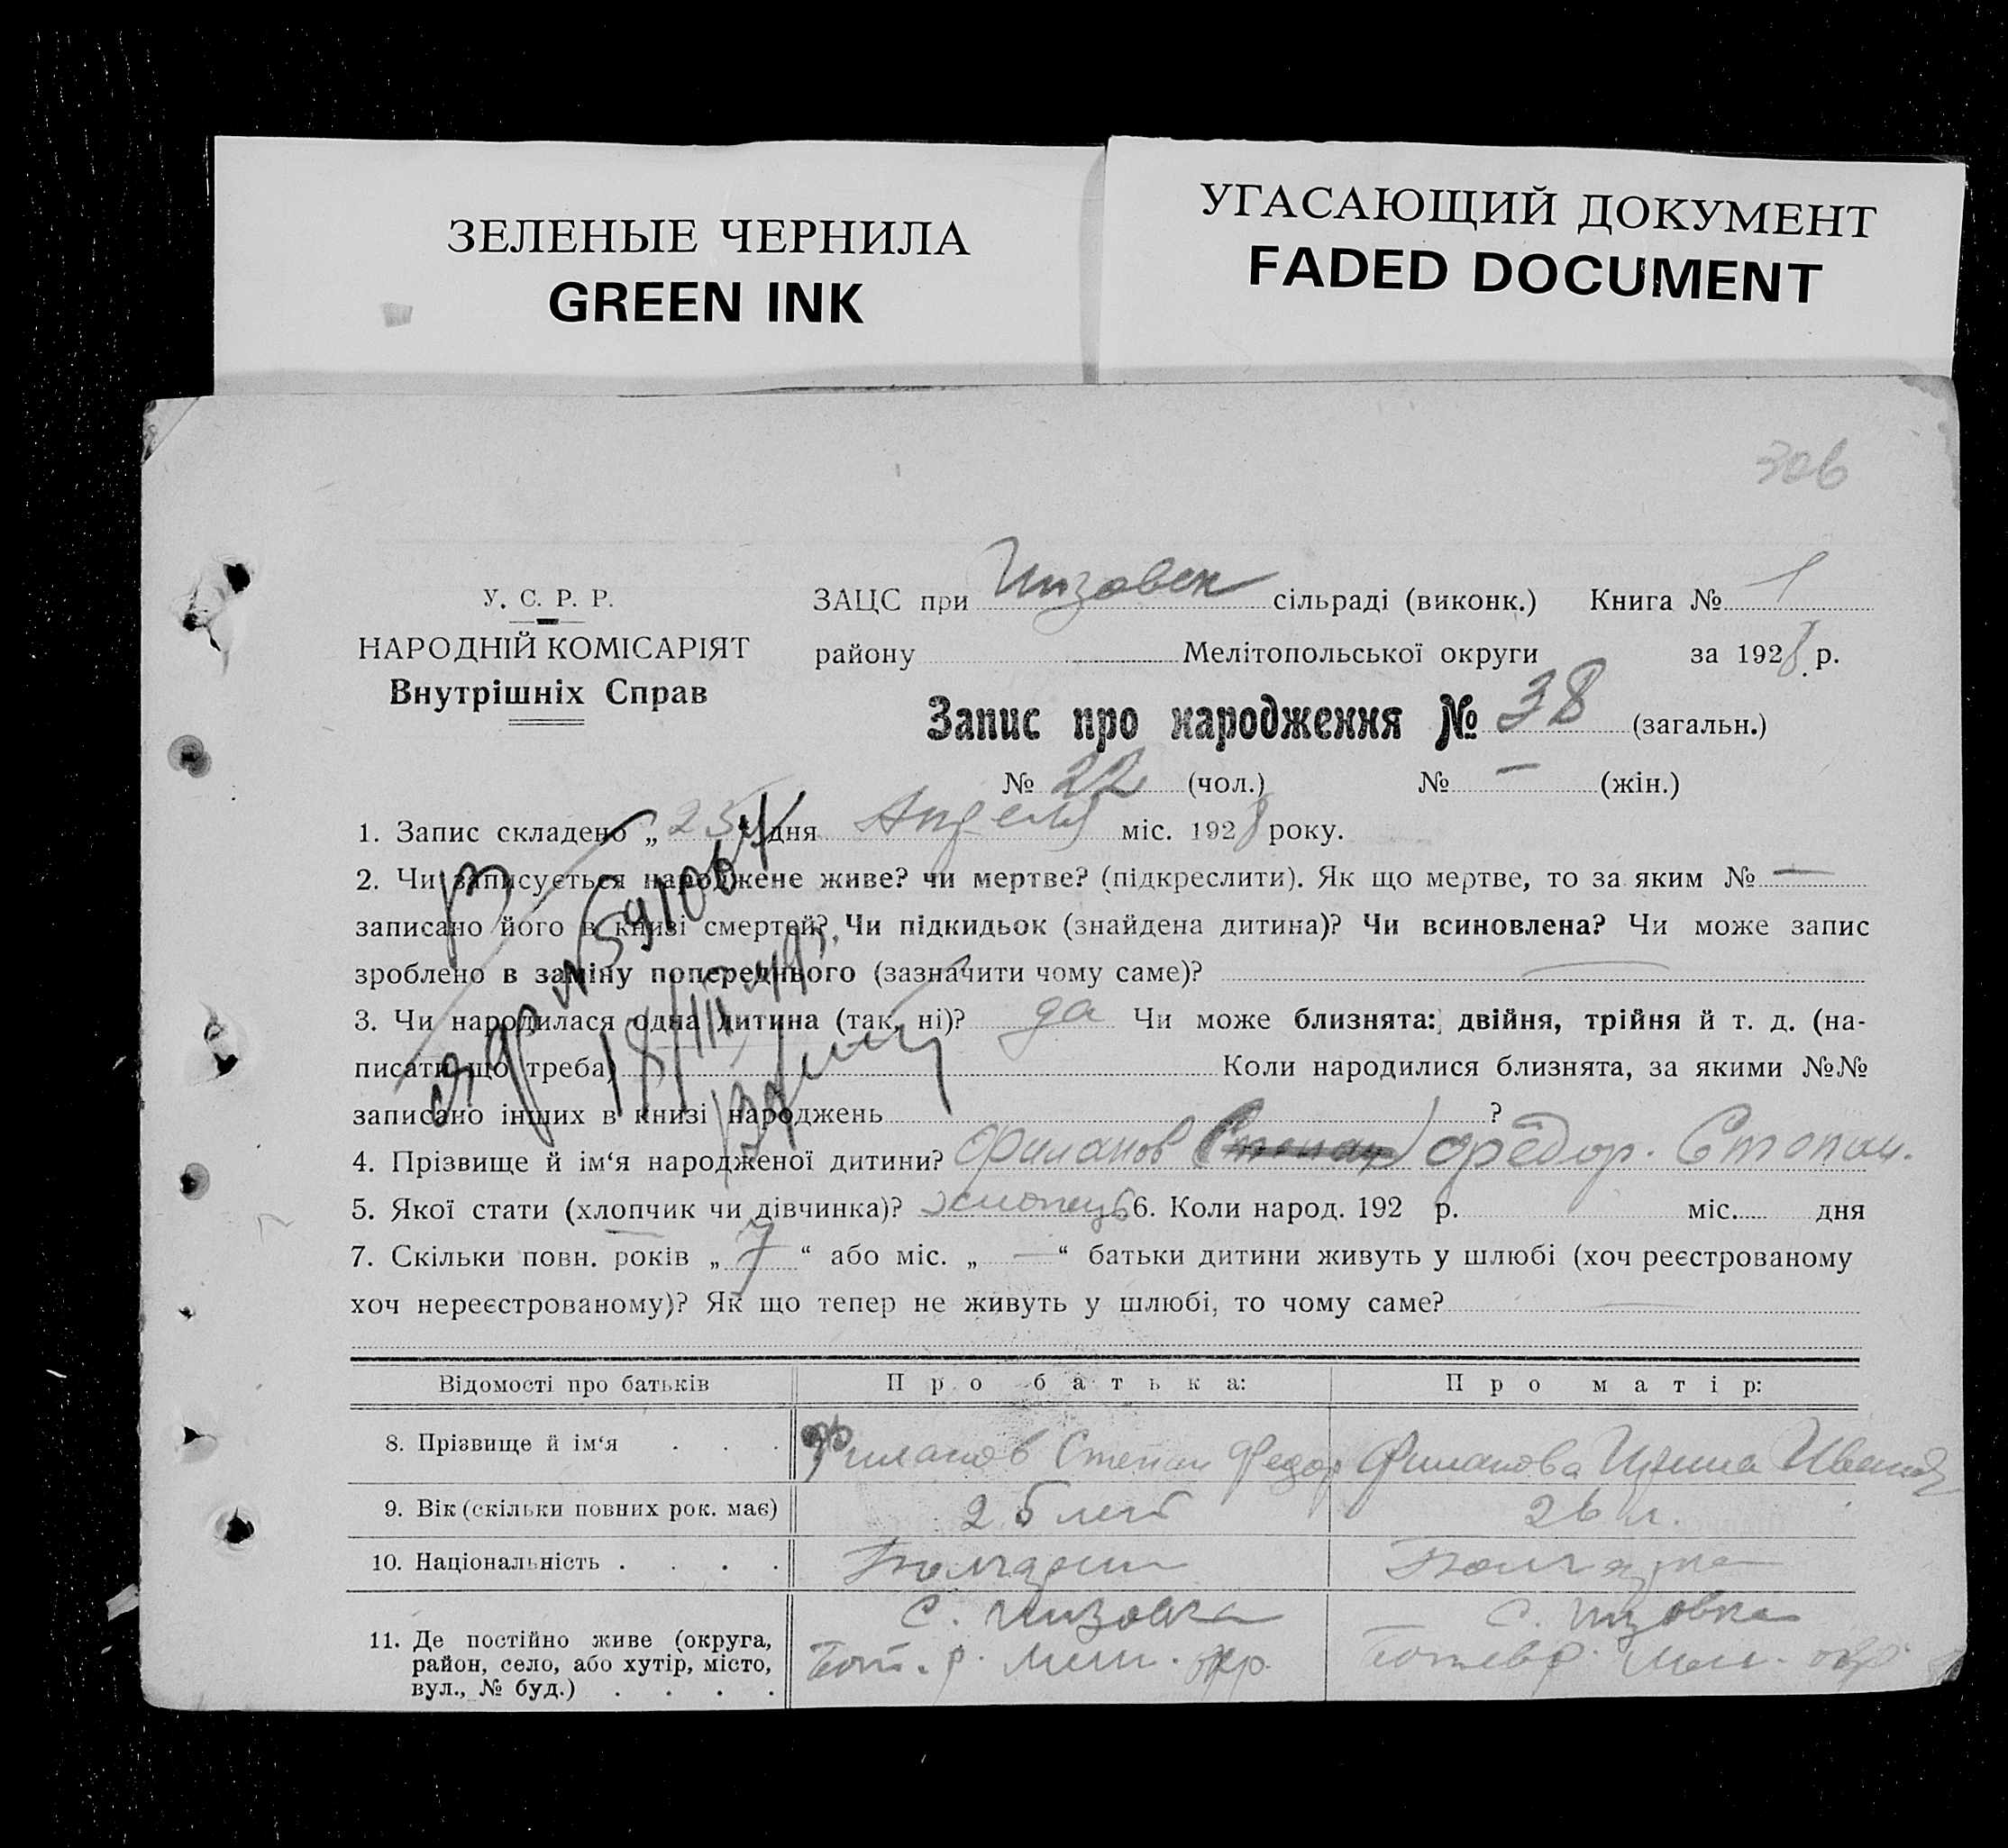 ЗЕЛЕНЫЕ ЧЕРНИЛА
GREEN INK
УГАСАЮЩИЙ ДОКУМЕНТ
FADED DOCUMENT
306
У. С. Р. Р.
НАРОДНІЙ КОМІСАРІЯТ
Внутрішніх Справ
ЗАЦС при Гизовск сільраді (виконк.) Книга № 1
району Мелітопольської округи за 1928 р.
Запис про народження № 38 (загальн.)
№ 22 (чол.) № — (жін.)
1. Запис складено „ 25 “ дня Апреля міс. 1928 року.
2. Чи записується народжене живе? чи мертве? (підкреслити). Як що мертве, то за яким № —
записано його в книзі смертей? Чи підкидьок (знайдена дитина)? Чи всиновлена? Чи може запис
зроблено в заміну попереднього (зазначити чому саме)?
3. Чи народилася одна дитина (так, ні)? да Чи може близнята: двійня, трійня й т. д. (на-
писати що треба) Коли народилися близнята, за якими №№
записано інших в книзі народжень ?
4. Прізвище й ім‘я народженої дитини? Филанов Степан Фёдор. Степан.
5. Якої стати (хлопчик чи дівчинка)? хлопець 6. Коли народ. 192 р. міс. дня
7. Скільки повн. років „ 7 “ або міс. „ — “ батьки дитини живуть у шлюбі (хоч реєстрованому
хоч нереєстрованому)? Як що тепер не живуть у шлюбі, то чому саме?
Відомості про батьків Про батька: Про матір:
8. Прізвище й ім‘я . . . Филанов Степан Федор Филанова Ирина Иванов
9. Вік (скільки повних рок. має) 25 лет 26 л.
10. Національність . . . . Болгарин Болгарка
11. Де постійно живе (округа,
район, село, або хутір, місто,
вул., № буд.) . . . .
с. Гизовка
Бот. р. Мел. окр.
с. Гизовка
Мел. окр.